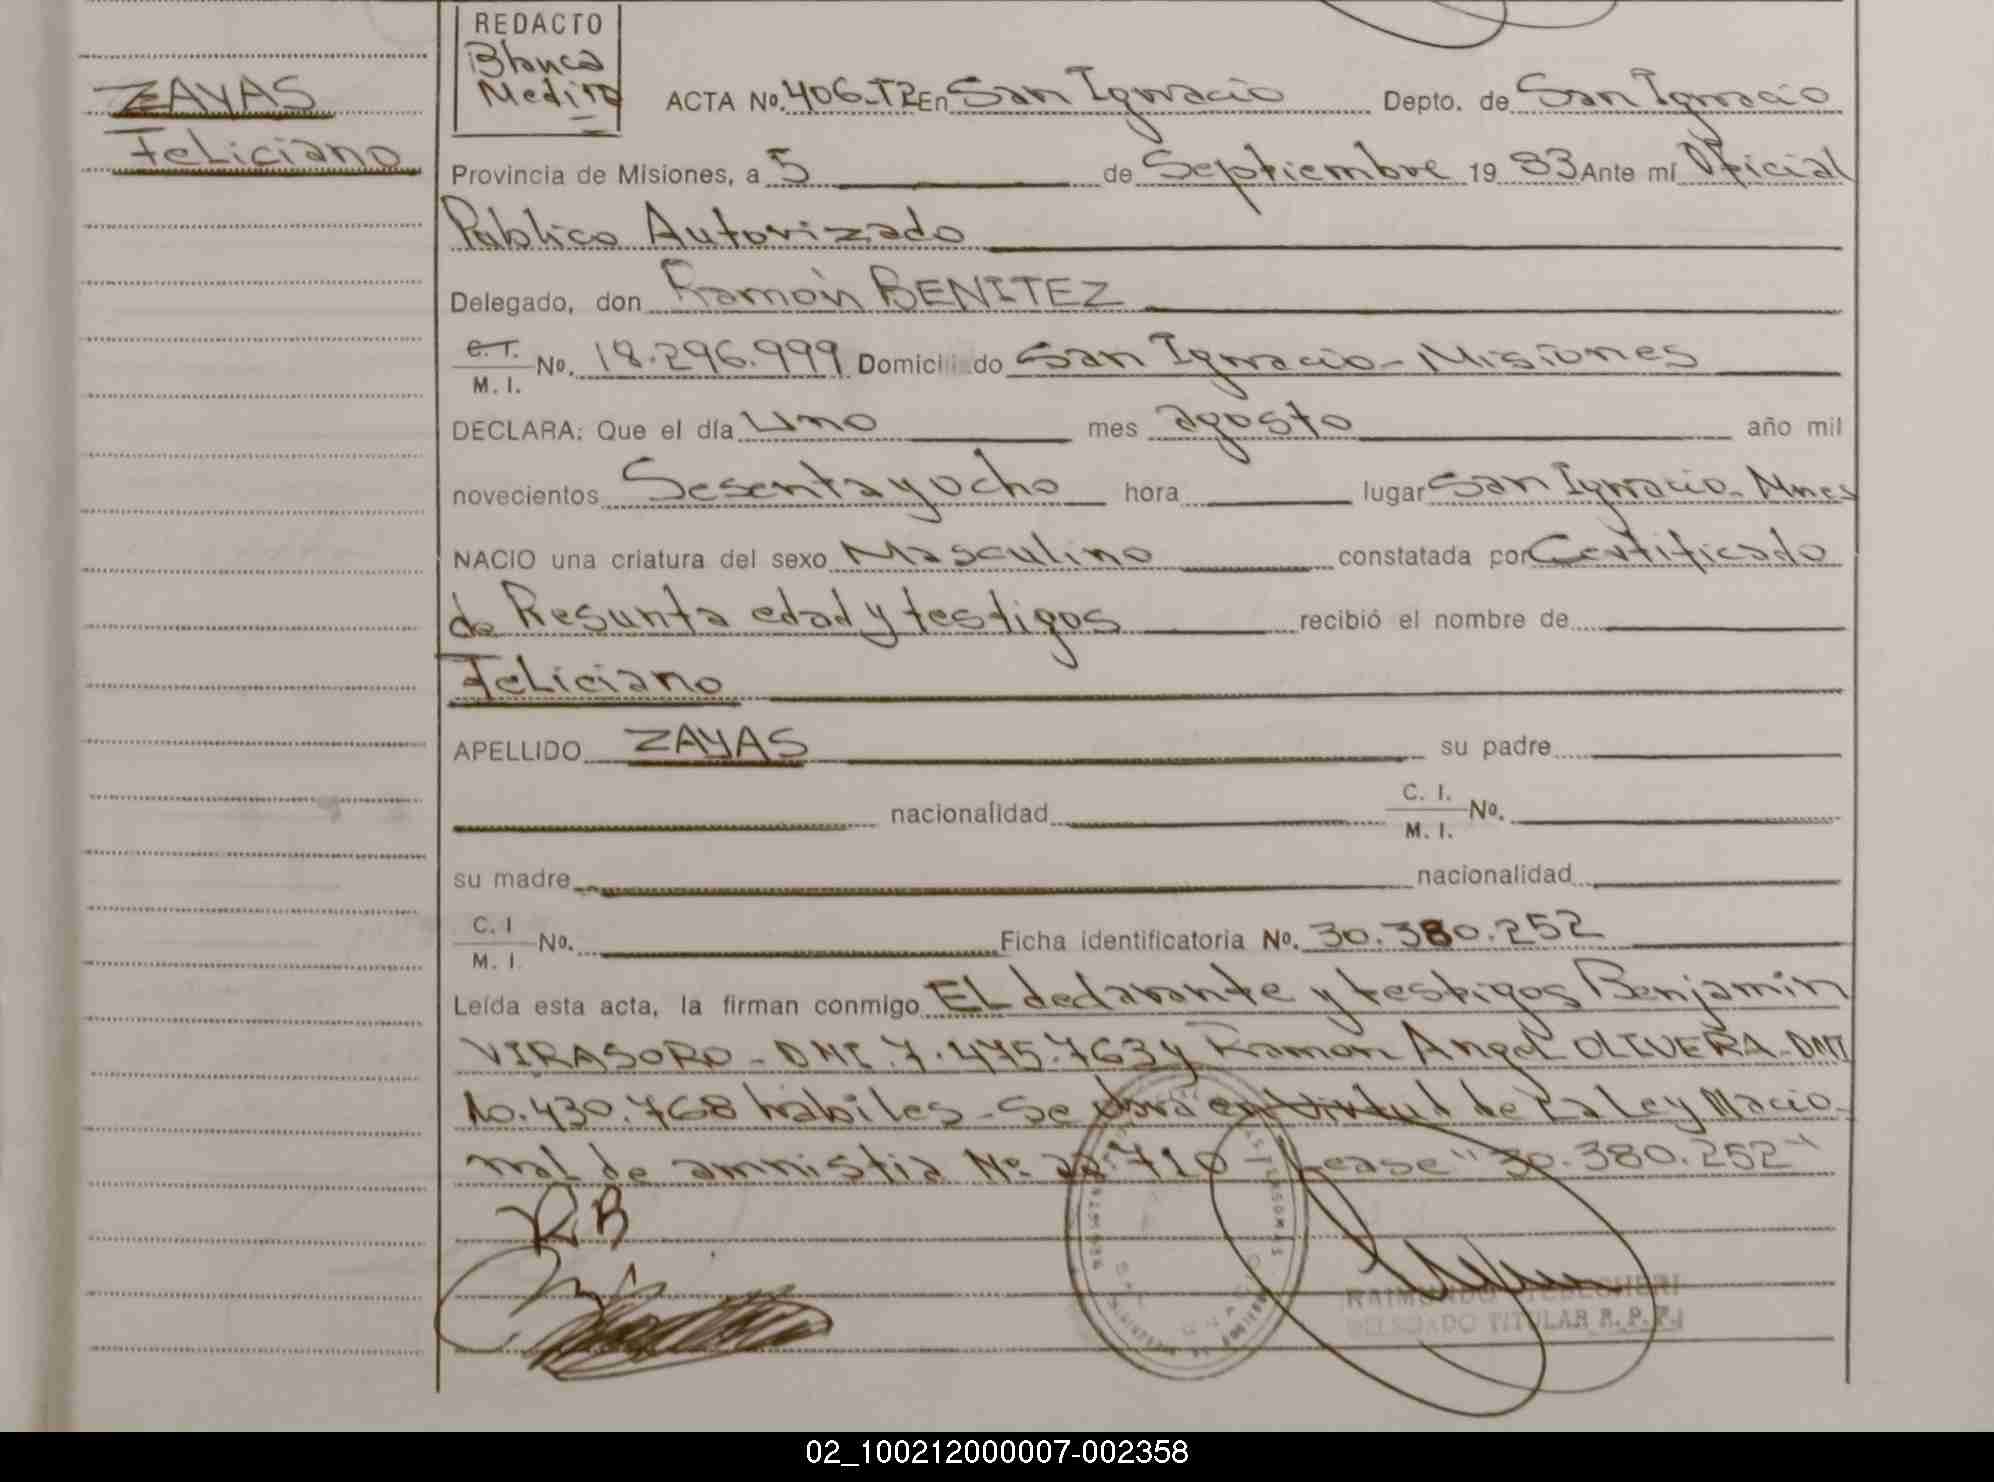 REDACTO
Blanca
ZAYAS
Feliciano
ACTA No. 406-T2 En San Ignacio Depto. de San Ignacio
Provincia de Misiones, a 5 de Septiembre 19 83 Ante mí Oficial
Publico Autorizado
Delegado, don Ramón BENITEZ
C.I. M. I. No. 18.296.999 Domiciliado San Ignacio - Misiones
DECLARA: Que el día Uno mes agosto año mil
novecientos Sesenta y ocho hora lugar San Ignacio - Mnes
NACIO una criatura del sexo Masculino constatada por Certificado
de Resunta edad y testigos recibió el nombre de
Feliciano
APELLIDO ZAYAS su padre
nacionalidad C. I. M. I. No.
su madre nacionalidad
C. I M. I. No. Ficha identificatoria No. 30.380.252
Leída esta acta, la firman conmigo EL declarante y testigos Benjamin
VIRASORO - DMI. 7.475.763 y Ramon Angel OLIVERA - DMI
10.430.768 habiles - Se labra en virtud de La Ley Nacio-
nal de amnistia Nº 22710 Lease "30.380.252"
RB
RAIMUNDO
DELEGADO TITULAR R. P. P.
02_100212000007-002358